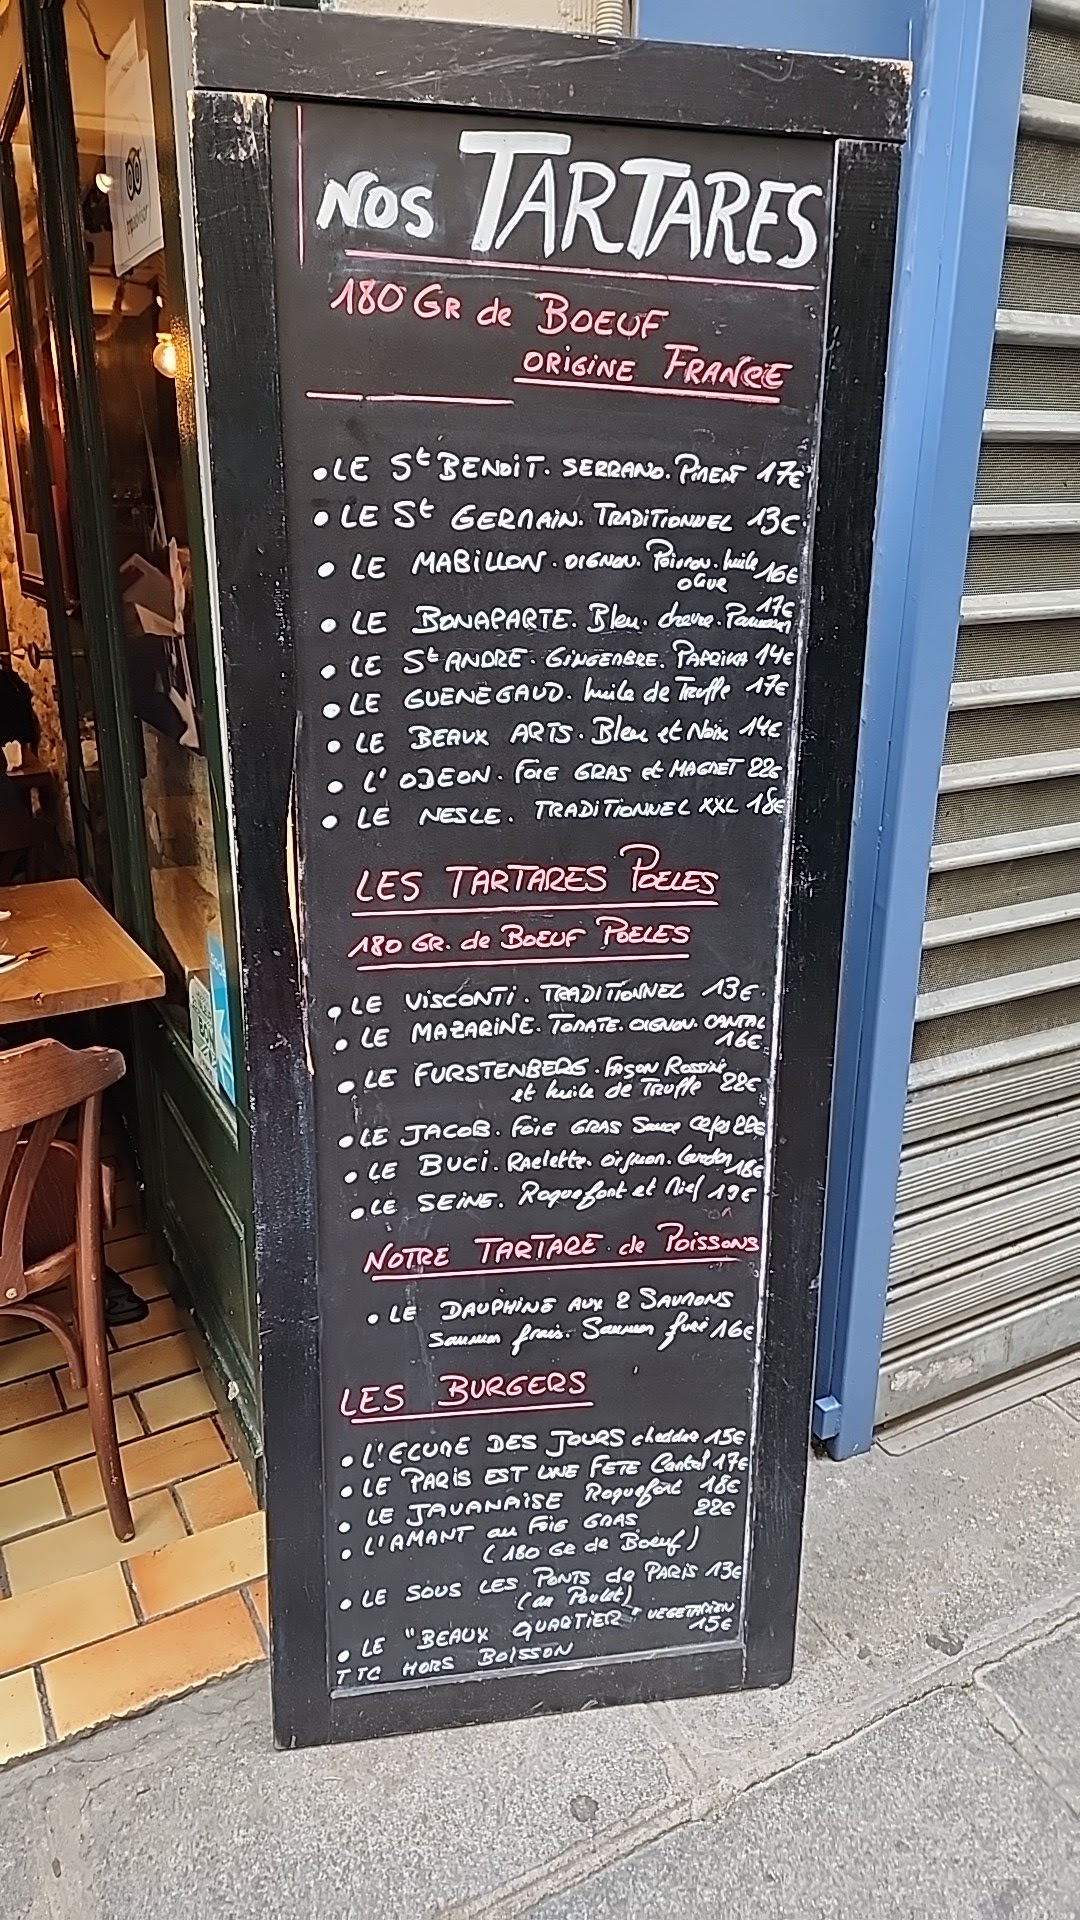 NOS TARTARES
180 GR de BOEUF
ORIGINE FRANCE
• LE St BENOIT. SERRANO. PIMENT 17€
• LE St GERMAIN. TRADITIONNEL 13€
• LE MABILLON. OIGNON. Poivron. huile
olive 16€
17€
• LE BONAPARTE. Bleu. chevre. Parmesan
• LE St ANDRE. GINGEMBRE. PAPRIKA 14€
• LE GUENEGAUD. huile de Truffe 17€
• LE BEAUX ARTS. Bleu et Noix 14€
• L'ODEON. FOIE GRAS et MAGRET 22€
• LE NESLE. TRADITIONNEL XXL 18€
LES TARTARES POELES
180 GR. de BOEUF POELES
• LE VISCONTI. TRADITIONNEL 13€
• LE MAZARINE. TOMATE. OIGNON. CANTAL
16€
• LE FURSTENBERG. FAÇON ROSSINI
et huile de Truffe 22€
• LE JACOB. FOIE GRAS Sauce Cèpes 22€
• LE BUCI. Raclette. oignon. lardon 18€
• LE SEINE. Roquefort et Miel 19€
NOTRE TARTARE de POISSONS
• LE DAUPHINE AUX 2 SAUMONS
Saumon frais. Saumon fumé 16€
LES BURGERS
• L'ECUME DES JOURS cheddar 15€
• LE PARIS EST UNE FETE Cantal 17€
• LE JAVANAISE Roquefort 18€
• L'AMANT au FOIE GRAS 22€
(180 GR de Boeuf)
• LE SOUS LES PONTS de PARIS 13€
(au Poulet)
• LE "BEAUX QUARTIER" VEGETARIEN
15€
TTC HORS BOISSON